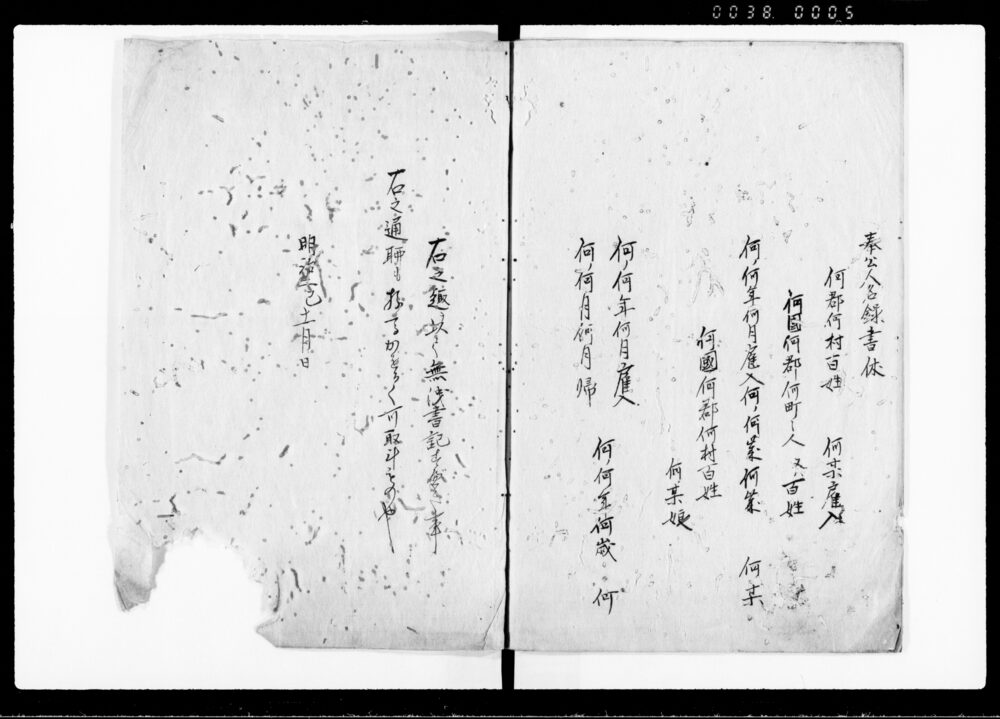 0038 0005
奉公人名録書体
何郡何村百姓 何某雇入
何國何郡何町之人 又ハ百姓
何ノ何年何月雇入何ノ何歳何歳 何某
何國何郡何村百姓
何某娘
何ノ何年何月雇入 何ノ何年何歳 何
何ノ何月何月帰
右之趣 無洩書記 事
右之通聊も 可取斗もの也
明治 巳十一月日